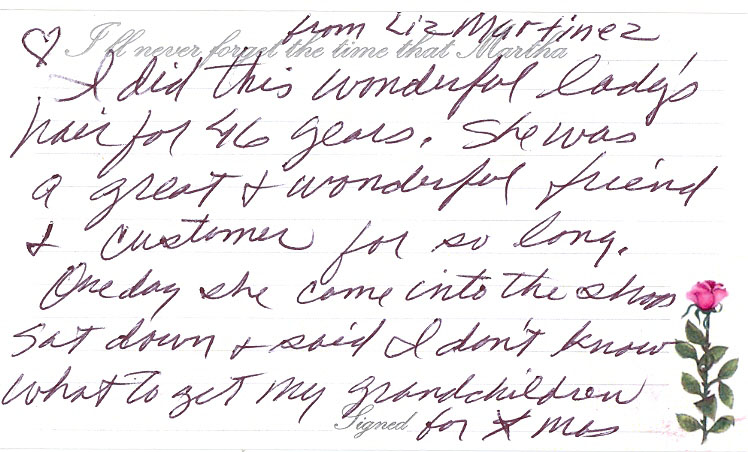 from Liz Martinez
I'll never forget the time that Martha
I did this wonderful lady's
hair for 46 years. She was
a great & wonderful friend
& customer for so long.
One day she come into the shop
sat down & said I don't know
what to get my grandchildren
Signed for X mas